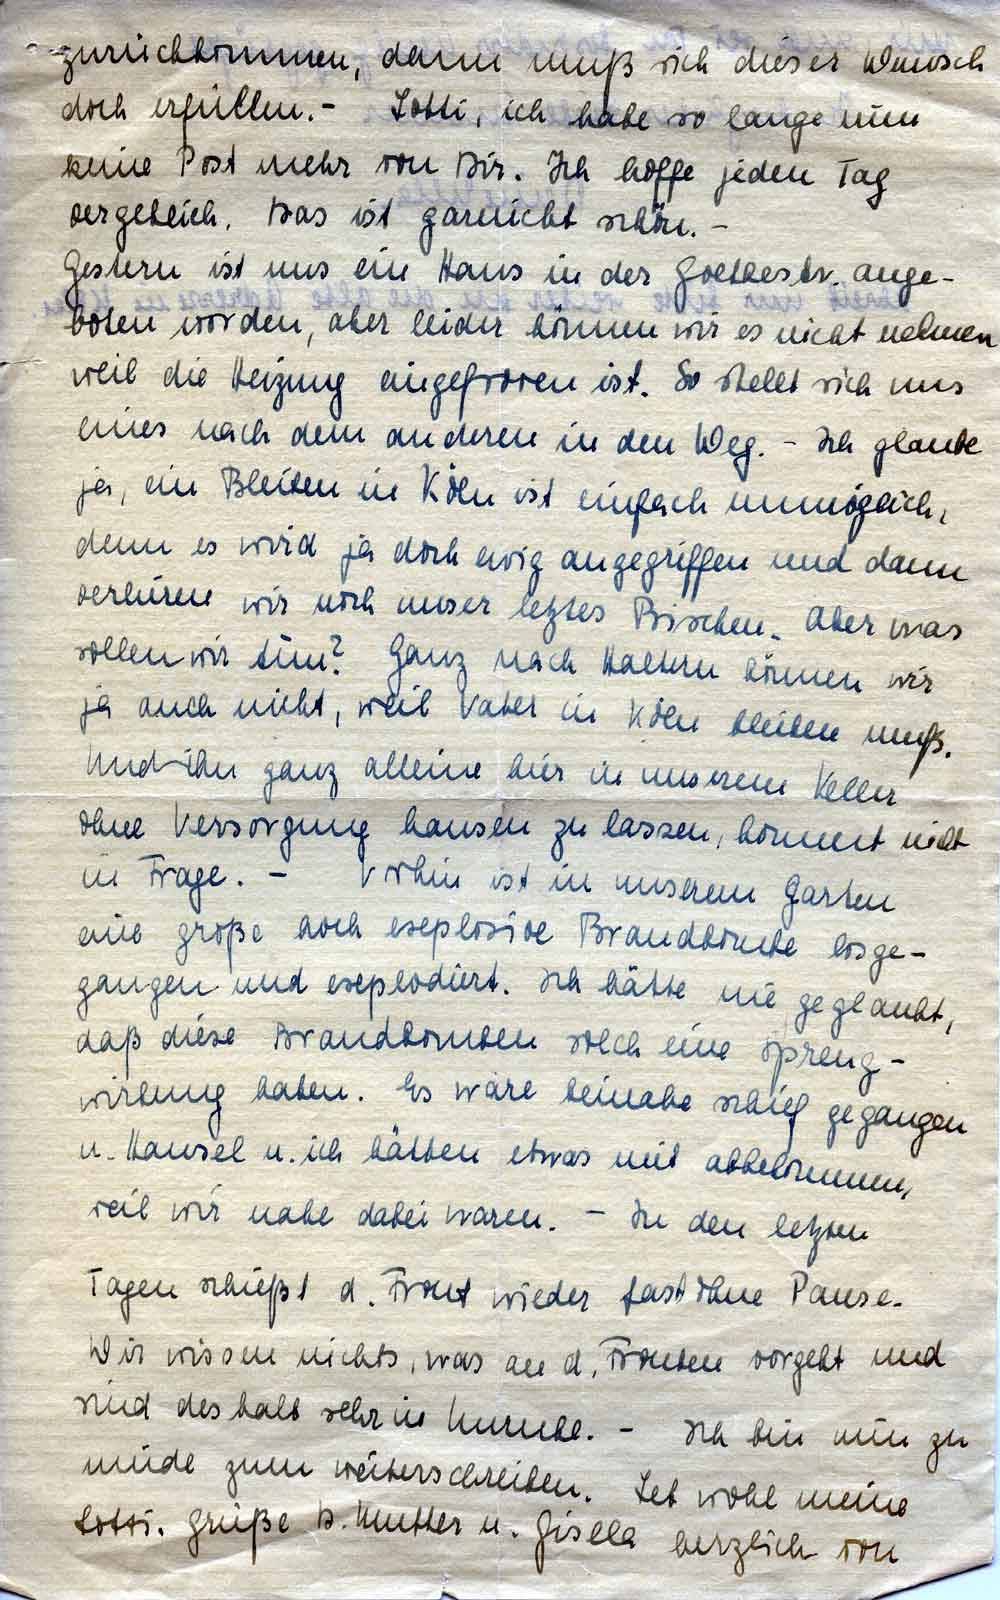 zurückkommen, dann muß sich dieser Wunsch
doch erfüllen. - Lotti, ich habe so lange nun
keine Post mehr von Dir. Ich hoffe jeden Tag
vergeblich. Das ist garnicht schön. -
Gestern ist uns ein Haus in der Goethestr. ange-
boten worden, aber leider können wir es nicht nehmen
weil die Heizung eingefroren ist. So stellt sich uns
eines nach dem anderen in den Weg. - Ich glaube
ja, ein Bleiben in Köln ist einfach unmöglich,
denn es wird ja doch ewig angegriffen und dann
verlieren wir noch unser letztes Bischen. Aber was
sollen wir tun? Ganz nach Haltern können wir
ja auch nicht, weil Vater in Köln bleiben muß.
Und ihn ganz alleine hier in unserem Keller
ohne Versorgung hausen zu lassen, kommt nicht
in Frage. - Vorhin ist in unserem Garten
eine große hoch exeplosive Brandbombe losge-
gangen und exeplodiert. Ich hätte nie geglaubt,
daß diese Brandbomben solch eine Spreng-
wirkung haben. Es wäre beinahe schief gegangen
u. Hansel u. ich hätten etwas mit abbekommen,
weil wir nahe dabei waren. - In den letzten
Tagen schießt d. Front wieder fast ohne Pause.
Wir wissen nichts, was an d. Fronten vorgeht und
sind deshalb sehr in Unruhe. - Ich bin nun zu
müde zum weiterschreiben. Leb wohl meine
Lotti. Grüße D. Mutter u. Gisela herzlich von